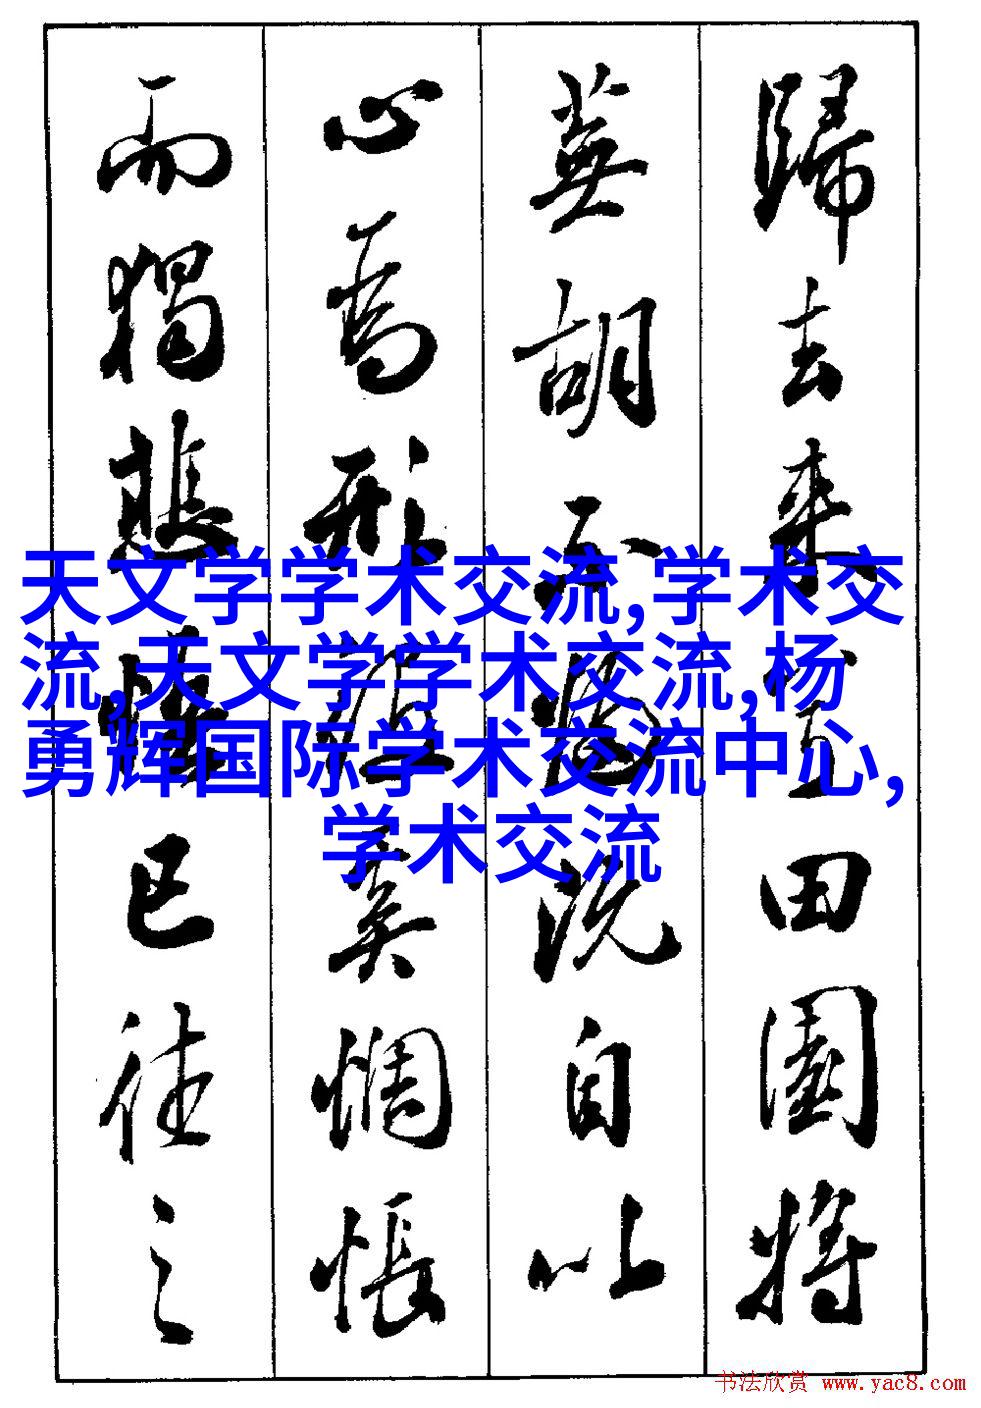 歸去來兮田園將
蕪胡不歸既自以
心為形役奚惆悵
而獨悲已往之
天文学学术交流,学术交
流,天文学学术交流,杨
勇辉国际学术交流中心,
学术交流
书法欣赏 www.yac8.com